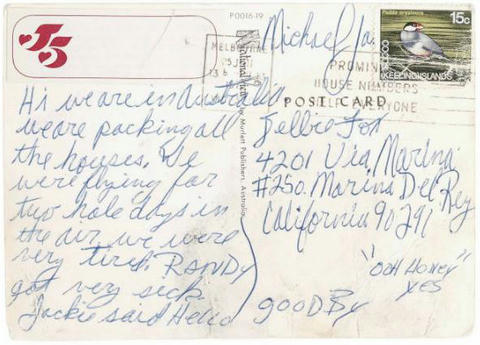 J5
P0016-19
Hi we are in Australia
we are packing all
the houses. We
were flying for
two hole days in
the air we were
very tired. RANDY
got very sick
Jackie said Hello
MELBOURNE
Murfett Publishers, Australia.
Michael Ja
Padda oryzivora
15c
COCOS
KEELING ISLANDS
PROMIN
HOUSE NUMBERS
HELP EVERYONE
POST CARD
Debbie Fox
4201 Via Marina
#250. Marina Del Rey
California 90291
"OOH Honey"
yes
gooDBy